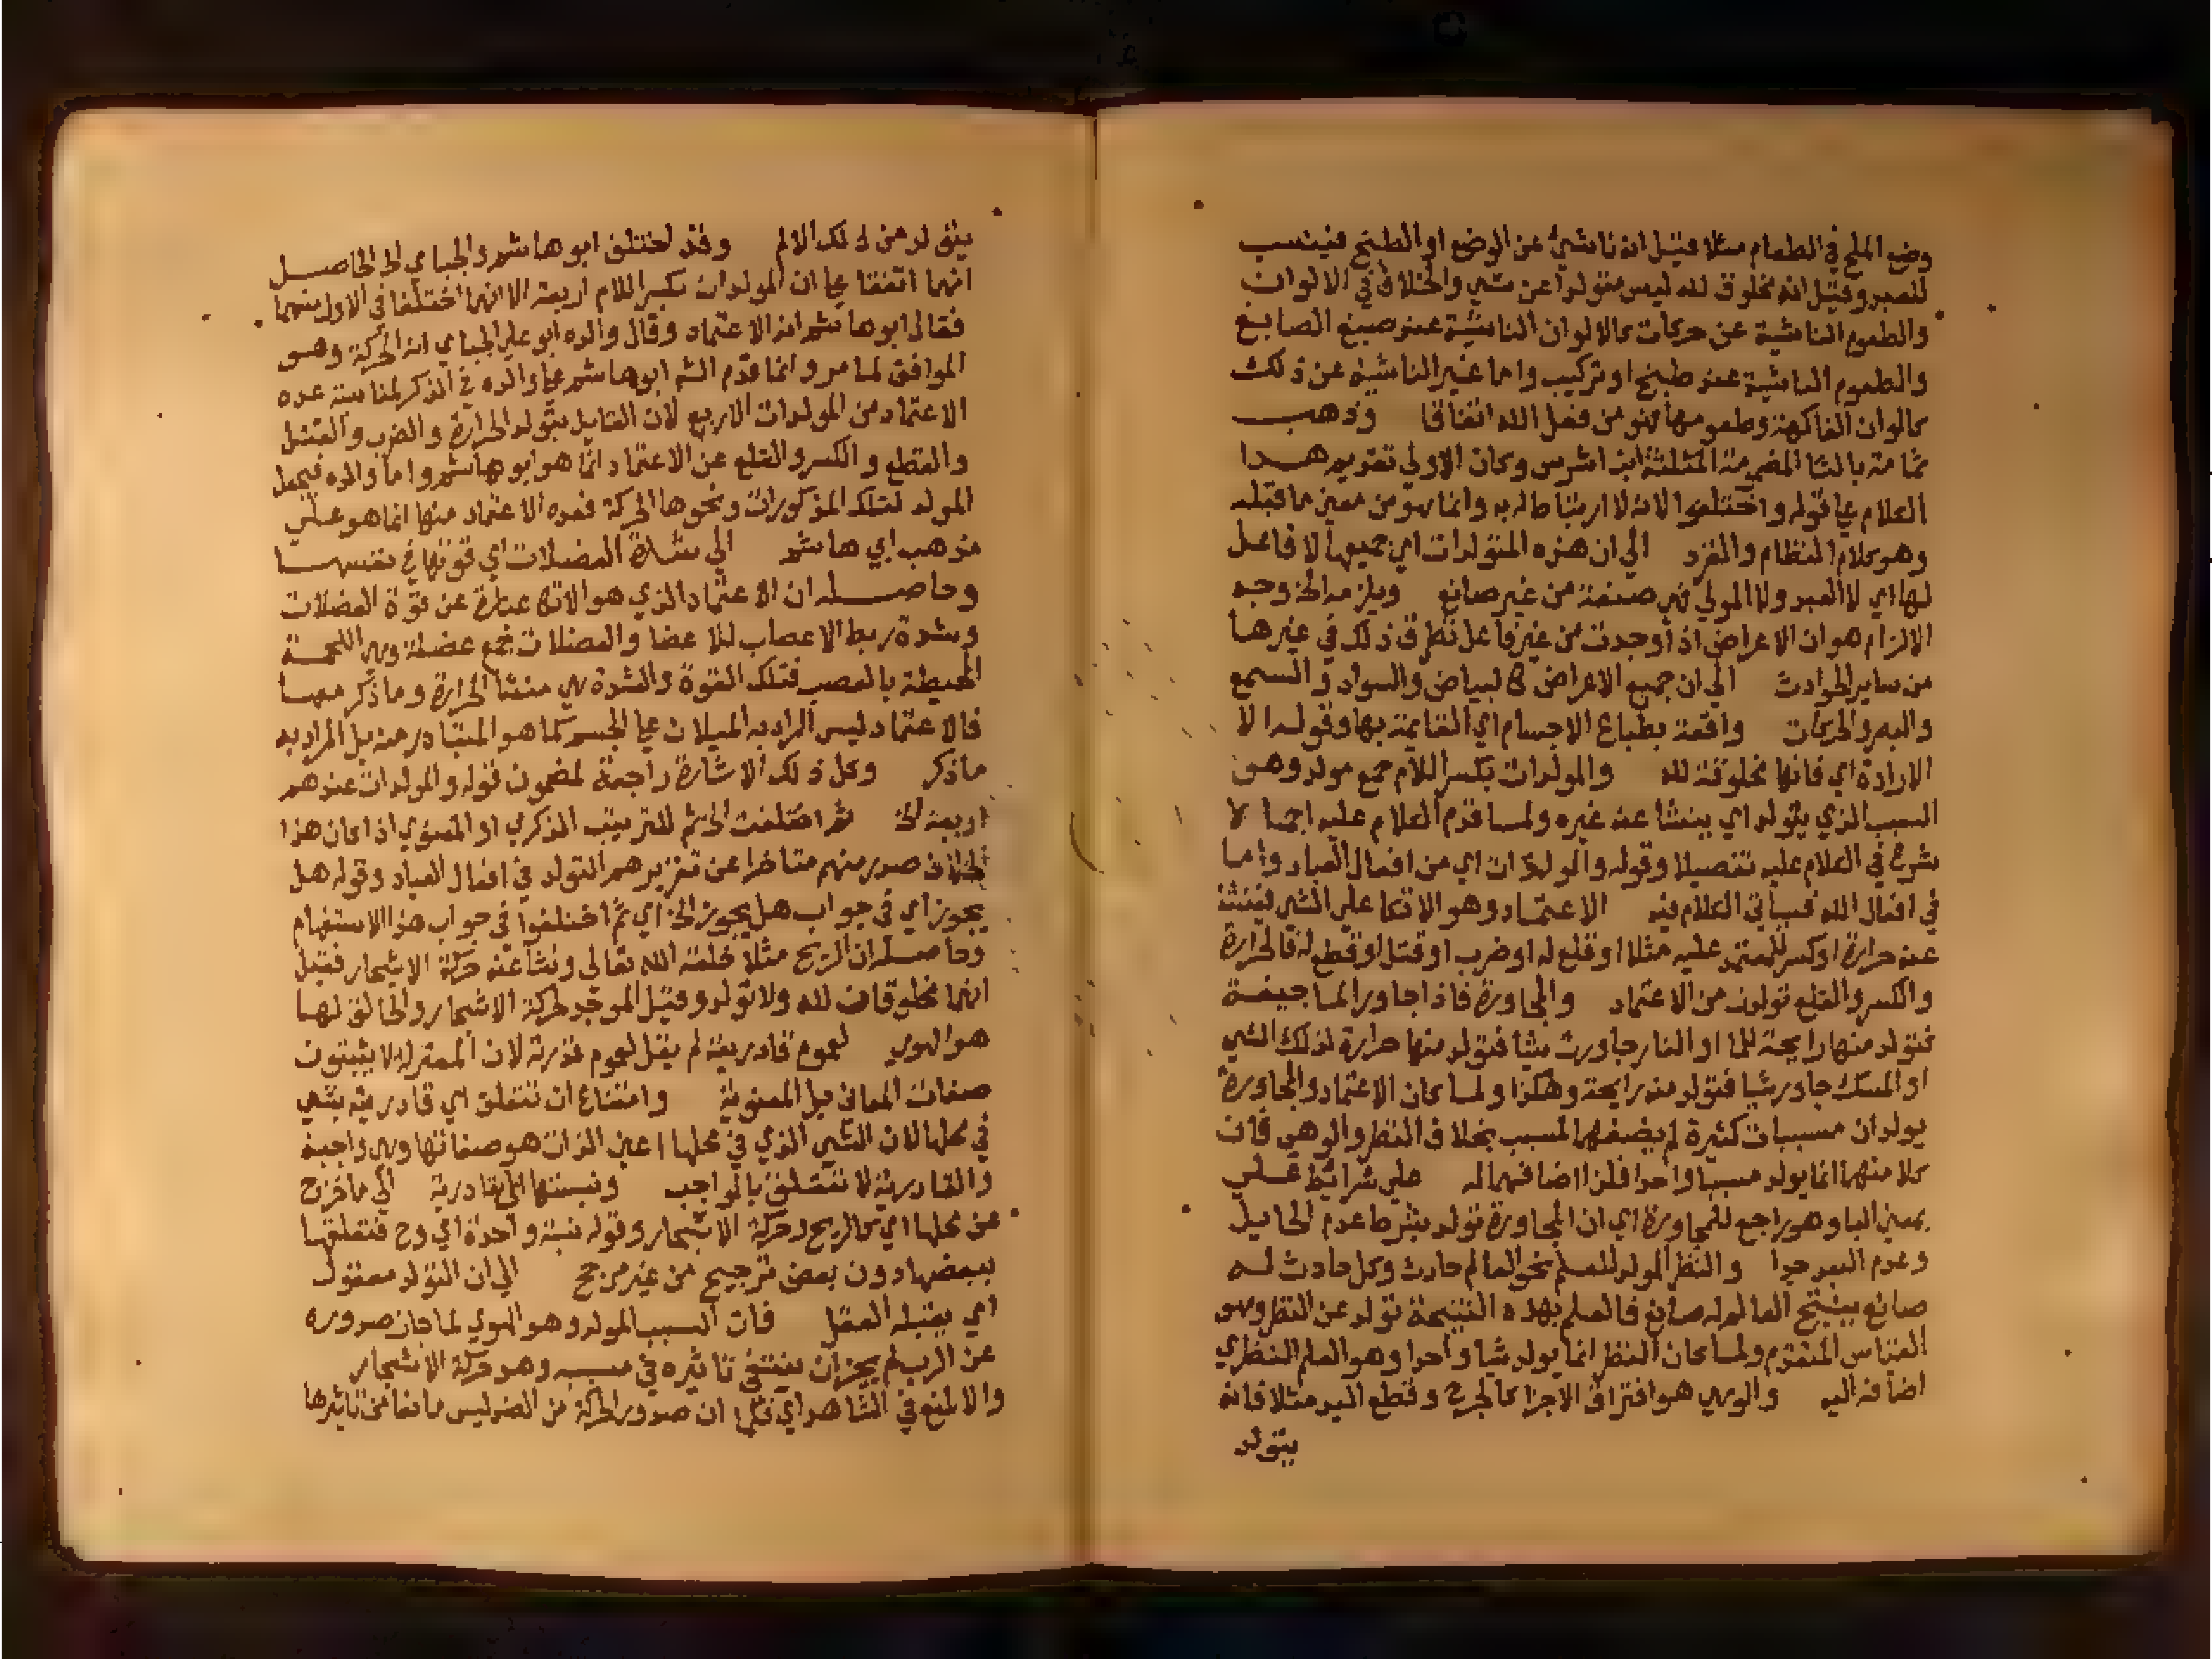 وضع الملح في الطعام مثلا فقيل انه ناشئ عن الوضع او الطبخ فينسب
للعبد وقيل انه مخلوق لله ليس متولدا عن شي والخلاف في الالوان
والطعوم الناشية عن حركات كالالوان الناشية عند صبغ الصابغ
والطعوم الناشية عند طبخ او تركيب واما غير الناشية عن ذلك
كالوان الفاكهة وطعومها فهو من فعل الله اتفاقا وذهب
ثمامة بالثا المضمومة المثلثة ابن اشرس وكان الاولي تقديم هذا
الكلام علي قوله واختلفوا لانه لا ارتباط له به وانما هو من معني ما قبله
وهو كلام النظام والفرد الي ان هذه المتولدات اي جميعها لا فاعل
لها اي لا العبد ولا المولي فهي صنعة من غير صانع ويلزمه الخ وجه
الالزام هو ان الاعراض اذا وجدت من غير فاعل تطرق ذلك في غيرها
من ساير الحوادث الي ان جميع الاعراض كالبياض والسواد والسمع
والبصر والحركات واقعة بطباع الاجسام اي القايمة بها وقوله الا
الارادة اي فانها مخلوقة لله والمولدات بكسر اللام جمع مولد وهو
السبب الذي يتولد اي ينشا عنه غيره ولما قدم الكلام عليه اجمالا
شرع في الكلام عليه تفصيلا وقوله والمولدات اي من افعال العباد واما
في افعال الله فسياتي الكلام فيه الاعتماد وهو الاتكا علي الشي فينشا
عنه حرارة او كسر للمعتمد عليه مثلا او قلع له او ضرب او قتل او قطع له فالحرارة
والكسر والقلع تولدت من الاعتماد والمجاورة فاذا جاور الماجيفة
فتولد منها رايحة للما او النار جاورت شيا فتولد منها حرارة لذلك الشي
او المسك جاور شيا فتولد منه رايحة وهكذا ولما كان الاعتماد والمجاورة
يولدان مسببات كثيرة لم يضفها لمسبب بخلاف النظر والوهي فان
كلا منهما انما يولد مسببا واحدا فلذا اضافهما له علي شرايط علي
بمعني البا وهو راجع للمجاورة اي ان المجاورة تولد بشرط عدم الحايل
وعدم البعد جدا والنظر المولد للعلم نحو العالم حادث وكل حادث له
صانع ينتج العالم له صانع فالعلم بهذه النتيجة تولد عن النظر وهو
القياس المتقدم ولما كان النظر انما يولد شيا واحدا وهو العلم النظري
اضافه اليه والوهي هو افتراق الاجزا كالجرح وقطع اليد مثلا فانه
يتولد
يتولد من ذلك الالم وقد اختلف ابو هاشم والجباي الخ الحاصل
انهما اتفقا علي ان المولدات بكسر اللام اربعة الا انهما اختلفا في الاول منهما
فقال ابو هاشم انه الاعتماد وقال والده ابو علي الجباي انه الحركة وهو
الموافق لما مر وانما قدم الشم ابو هاشم علي والده في الذكر لمناسبة عده
الاعتماد من المولدات الاربع لان القايل بتولد الحرارة والضرب والقتل
والقطع والكسر والقلع عن الاعتماد انما هو ابو هاشم واما والده فيجعل
المولد لتلك المذكورات ونحوها الحركة فعده الاعتماد منها انما هو علي
مذهب ابي هاشم الي شدة العضلات اي قوتها في نفسها
وحاصله ان الاعتماد الذي هو الاتكا عبارة عن قوة العضلات
وشدة ربط الاعصاب للاعضا والعضلات جمع عضلة وهي اللحمة
المحيطة بالعصب فتلك القوة والشدة هي منشا الحرارة وما ذكر معها
فالاعتماد ليس المراد به الميلان علي الجسم كما هو المتبادر منه بل المراد به
ماذكر وكل ذلك الاشارة راجعة لمضمون قوله والمولدات عندهم
اربعة الخ ثم اختلفت الخ ثم للترتيب الذكري او المعنوي اذا كان هذا
الخلاف صدر منهم متاخرا عن تقريرهم التولد في افعال العباد وقوله هل
يجوز اي في جواب هل يجوز الخ اي ثم اختلفوا في جواب هذا الاستفهام
وحاصله ان الريح مثلا خلقه الله تعالي ونشا عنه حركة الاشجار فقيل
انهما مخلوقان لله ولا تولد وقيل الموجد لحركة الاشجار والخالق لها
هو الهوي لعموم قادريته لم يقل لعموم قدرته لان المعتزلة لا يثبتون
صفات المعاني بل المعنوية وامتناع ان تتعلق اي قادريته بشي
في محلها لان الشي الذي في محلها اعني الذات هو صفاتها وهي واجبة
والقادرية لا تتعلق بالواجب ونسبتها الي قادرية الي ما خرج
عن محلها اي كالريح وحركة الاشجار وقوله نسبة واحدة اي وح فتعلقها
ببعضها دون بعض ترجيح من غير مرجح الي ان التولد معقول
اي يقبله العقل فان السبب المولد وهو الهوي لما جاز صدوره
عن الرب لم يجز ان ينتفي تاثيره في مسببه وهو حركة الاشجار
والا لمنع في الشاهد اي لكن ان صدور الحركة من العبد ليس مانعا من تاثيرها